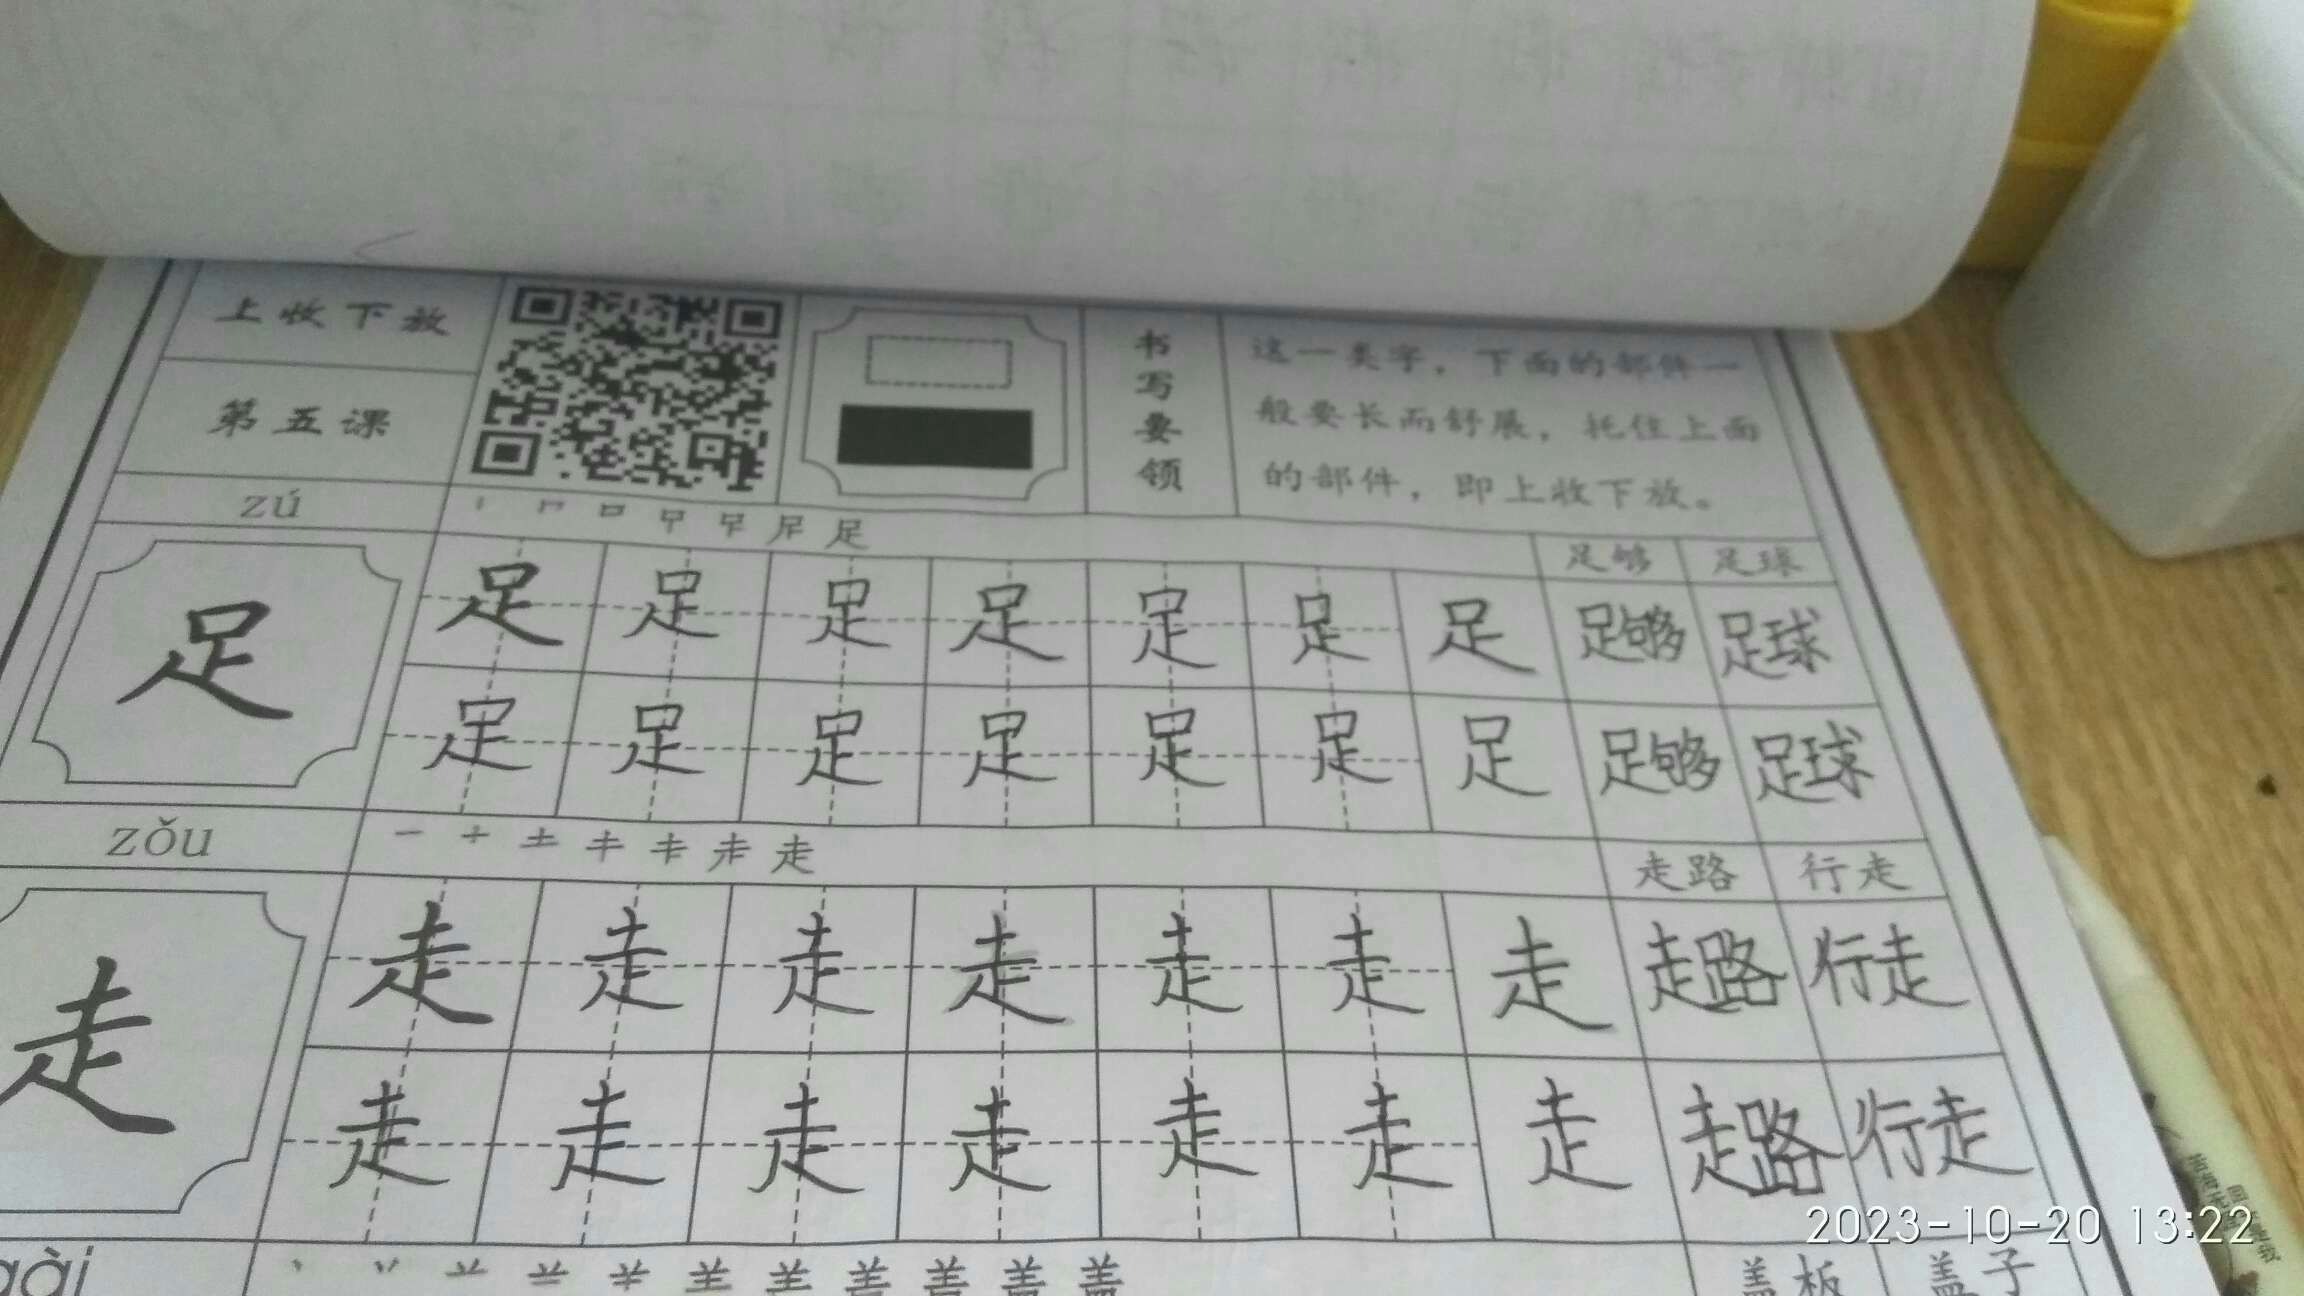 上收下放
第五课
书写要领
这一类字，下面的部件一
般要长而舒展，托住上面
的部件，即上收下放。
zú
足
足够 足球
足 足 足 足 足 足 足 足 足够 足球
足 足 足 足 足 足 足 足够 足球
zǒu
一 十 土 走
走路 行走
走 走 走 走 走 走 走 走 走路 行走
走 走 走 走 走 走 走 走路 行走
gài
盖
盖板 盖子
2023-10-20 13:22